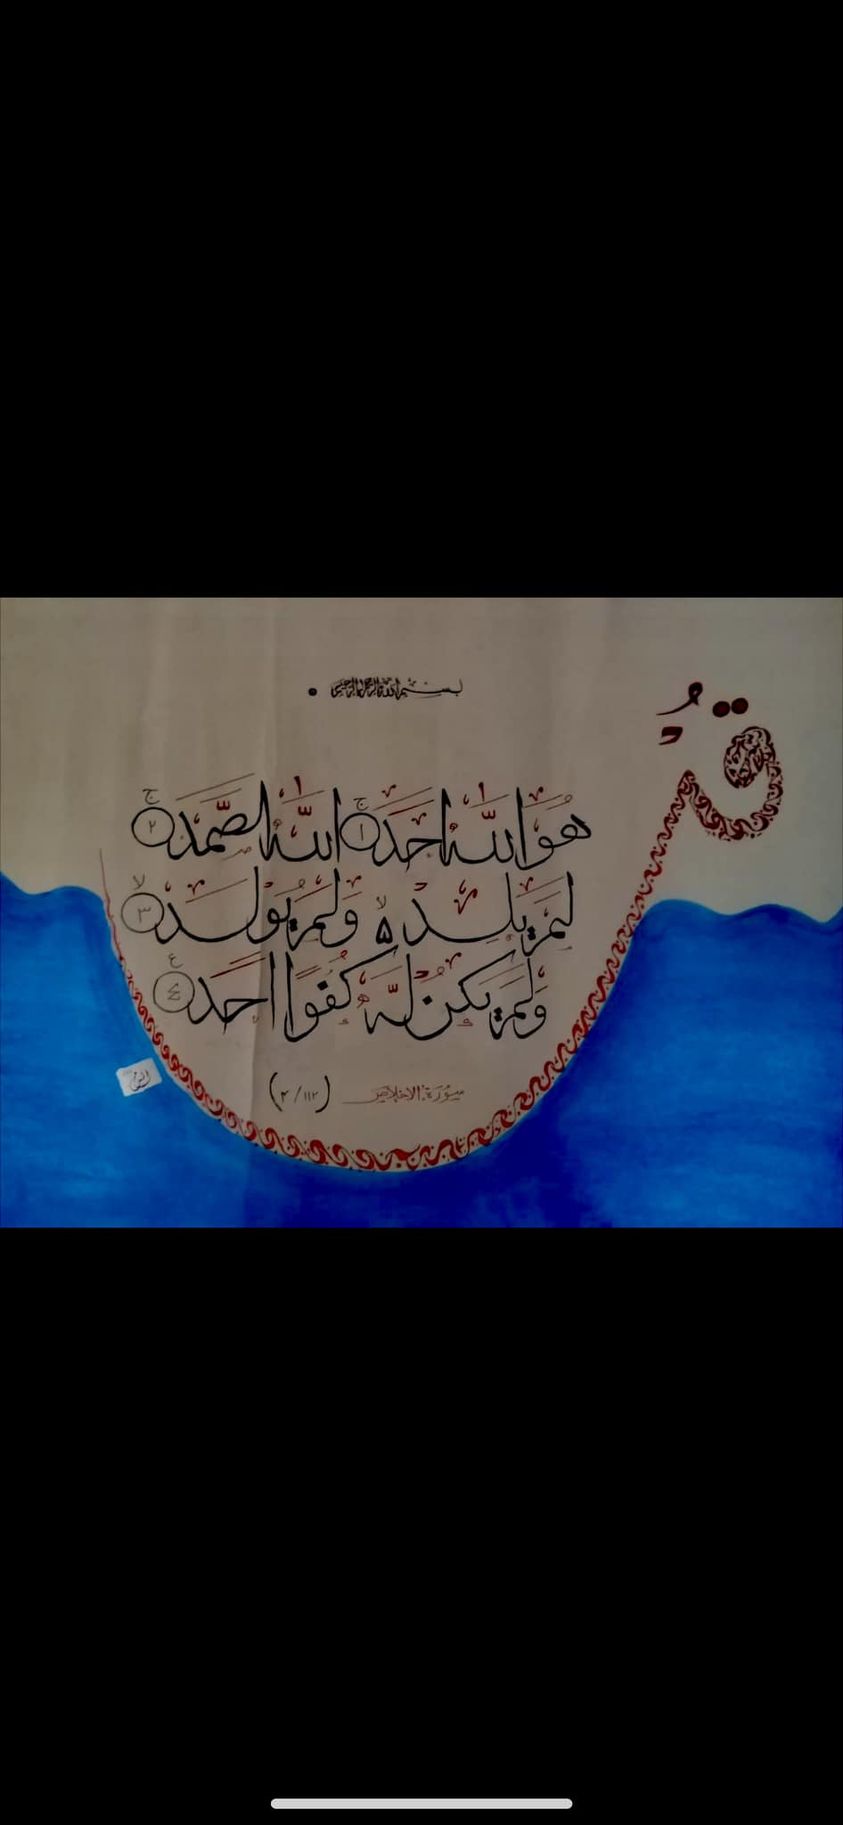 بسم الله الرحمن الرحيم
قُلْ
هُوَ اللّٰهُ اَحَدٌ ج ١ اَللّٰهُ الصَّمَدُ ج ٢
لَمْ يَلِدْ ۵ لا وَلَمْ يُوْلَدْ لا ٣
وَلَمْ يَكُنْ لَّهٗ كُفُوًا اَحَدٌ ع ٤
سورة الاخلاص (١١٢/٤)